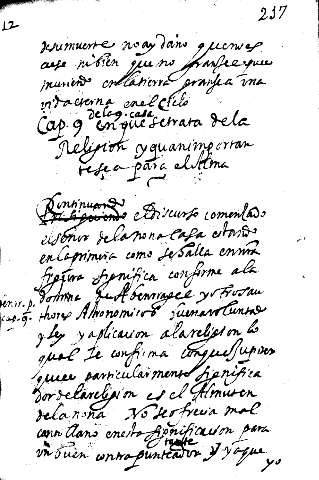 12
237
de su muerte no ay daño que no se
caese ni bien que no granjee que
muriendo en la tierra granjea una
vida eterna en el Cielo
de la 9. casa
Cap. 9 en que se trata de la
Religion y quan importan
te sea para el Alma
Continuando
el Discurso comensado
el señor de la nona Casa estando
en la primera como se halla en nra
figura significa conforme a la
doctrina de Abenragel y otros au
thores Astronomicos buena voluntad
y ley y aplicacion a la religion lo
qual se confirma con que Jupiter
que es particularmente significa
dor de la religion es el Almuten
de la nona No se ofrecia mal
canto llano en esta significacion para
un buen contrapunteador y ya que
yo
cap. 9.